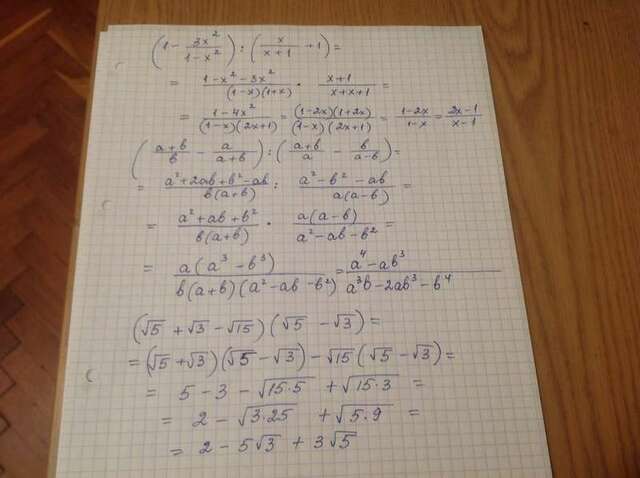 (1 - 3x²/(1-x²)) : (x/(x+1) + 1) =
= (1-x²-3x²)/((1-x)(1+x)) · (x+1)/(x+x+1) =
= (1-4x²)/((1-x)(2x+1)) = ((1-2x)(1+2x))/((1-x)(2x+1)) = (1-2x)/(1-x) = (2x-1)/(x-1)
((a+b)/b - a/(a+b)) : ((a+b)/a - b/(a-b)) =
= (a²+2ab+b²-ab)/(b(a+b)) : (a²-b²-ab)/(a(a-b)) =
= (a²+ab+b²)/(b(a+b)) · (a(a-b))/(a²-ab-b²) =
= (a(a³-b³))/(b(a+b)(a²-ab-b²)) = (a⁴-ab³)/(a³b-2ab³-b⁴)
(√5 + √3 - √15)(√5 - √3) =
= (√5 + √3)(√5 - √3) - √15(√5 - √3) =
= 5 - 3 - √15·5 + √15·3 =
= 2 - √3·25 + √5·9 =
= 2 - 5√3 + 3√5